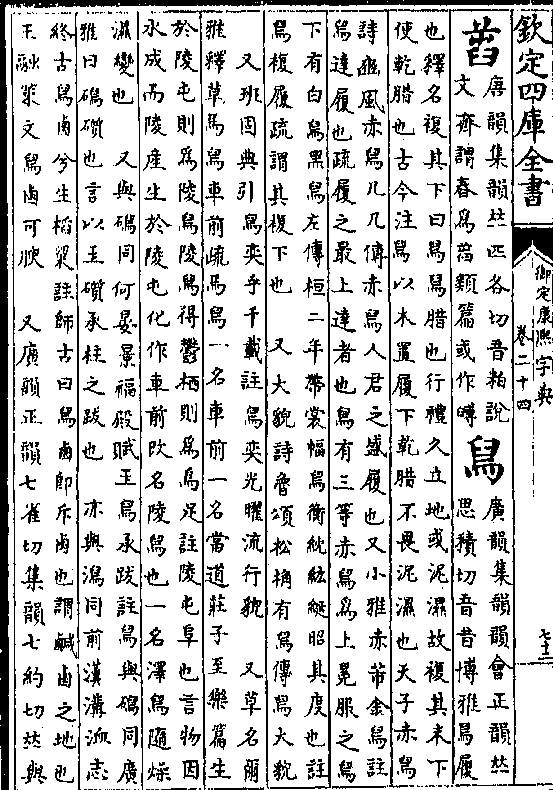 欽定四庫全書
御定康熙字典
卷二十四
七十三
𦥛
唐韻集韻𠀤匹各切音粕說
文齊謂舂為𦥛類篇或作
舄
廣韻集韻韻會正韻𠀤
思積切音昔博雅舄履
也釋名複其下曰舄舄腊也行禮久立地或泥濕故複其末下
使乾腊也古今注舄以木置履下乾腊不畏泥濕也天子赤舄
詩豳風赤舄几几傳赤舄人君之盛屨也又小雅赤芾金舄註
舄達屨也疏屨之最上達者也舄有三等赤舄為上冕服之舄
下有白舄黑舄左傳桓二年帶裳幅舄衡紞紘綖昭其度也註
舄複履疏謂其複下也 又大貌詩魯頌松桷有舄傳舄大貌
又班固典引舄奕乎千載註舄奕光曜流行貌 又草名爾
雅釋草馬舄車前疏馬舄一名車前一名當道莊子至樂篇生
於陵屯則為陵舄陵舄得鬱棲則為烏足註陵屯阜也言物因
水成而陵產生於陵屯化作車前改名陵舄也一名澤舄隨燥
濕變也 又與磶同何晏景福殿賦玉舄承跋註舄與磶同廣
雅曰磶礩也言以玉礩承柱之跋也 亦與潟同前漢溝洫志
終古舄鹵兮生稻粱註師古曰舄鹵即斥鹵也謂鹹鹵之地也
王融策文舄鹵可腴 又廣韻正韻七雀切集韻七約切𠀤與